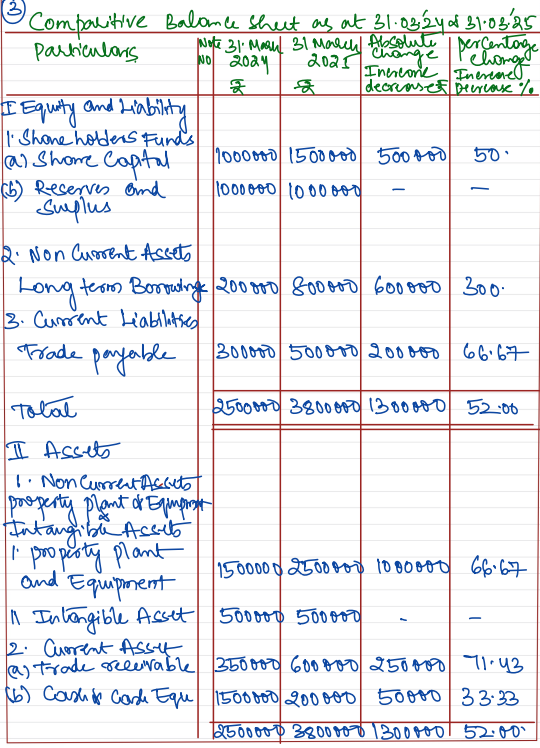 3
Comparitive Balance Sheet as at 31.03.'24 & 31.03.'25
Particulars Note No 31 March 2024 ₹ 31 March 2025 ₹ Absolute Change Increase decrease ₹ percentage Change Increase Decrease %
I Equity and Liability
1. Shareholders Funds
(a) Share Capital 1000000 1500000 500000 50.
(b) Reserves and 1000000 1000000 — —
Surplus
2. Non Current Assets
Long term Borrowing 200000 800000 600000 300.
3. Current Liabilities
Trade payable 300000 500000 200000 66.67
Total 2500000 3800000 1300000 52.00
II Assets
1. Non Current Assets
property plant & Equipment
& Intangible Assets
1. property plant
and Equipment 1500000 2500000 1000000 66.67
11 Intangible Asset 500000 500000 - -
2. Current Asset
(a) Trade receivable 350000 600000 250000 71.43
(b) Cash & Cash Equ 1500000 200000 50000 33.33
2500000 3800000 1300000 52.00.